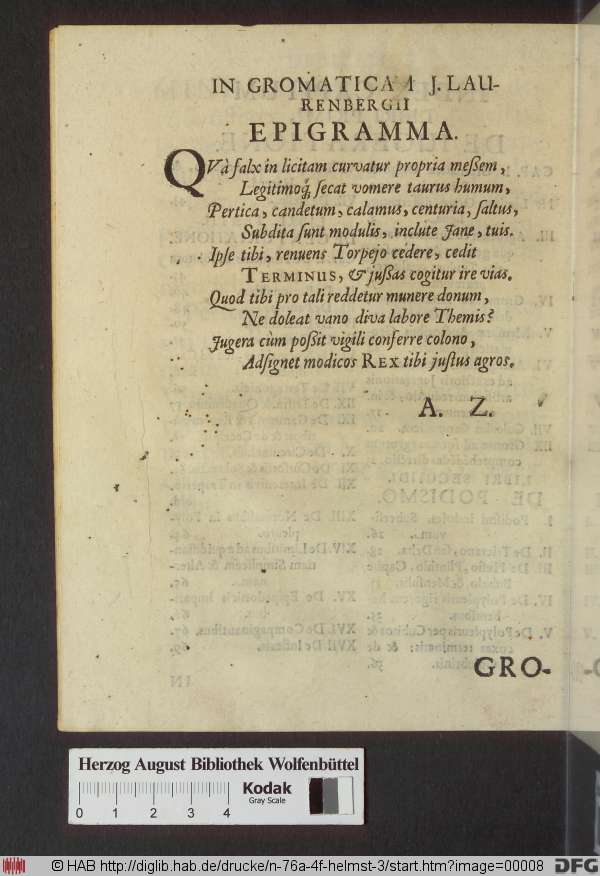 IN GROMATICAM J. LAU-
RENBERGII
EPIGRAMMA.
QVà falx in licitam curvatur propria meßem,
Legitimoq; secat vomere taurus humum,
Pertica, candetum, calamus, centuria, saltus,
Subdita sunt modulis, inclute Jane, tuis.
Ipse tibi, renuens Torpejo cedere, cedit
TERMINUS, & jußas cogitur ire vias.
Quod tibi pro tali reddetur munere donum,
Ne doleat vano diva labore Themis?
Jugera cùm poßit vigili conferre colono,
Adsignet modicos REX tibi justus agros.
A. Z.
GRO-
Herzog August Bibliothek Wolfenbüttel
Kodak
Gray Scale
0 1 2 3 4
© HAB http://diglib.hab.de/drucke/n-76a-4f-helmst-3/start.htm?image=00008
DFG